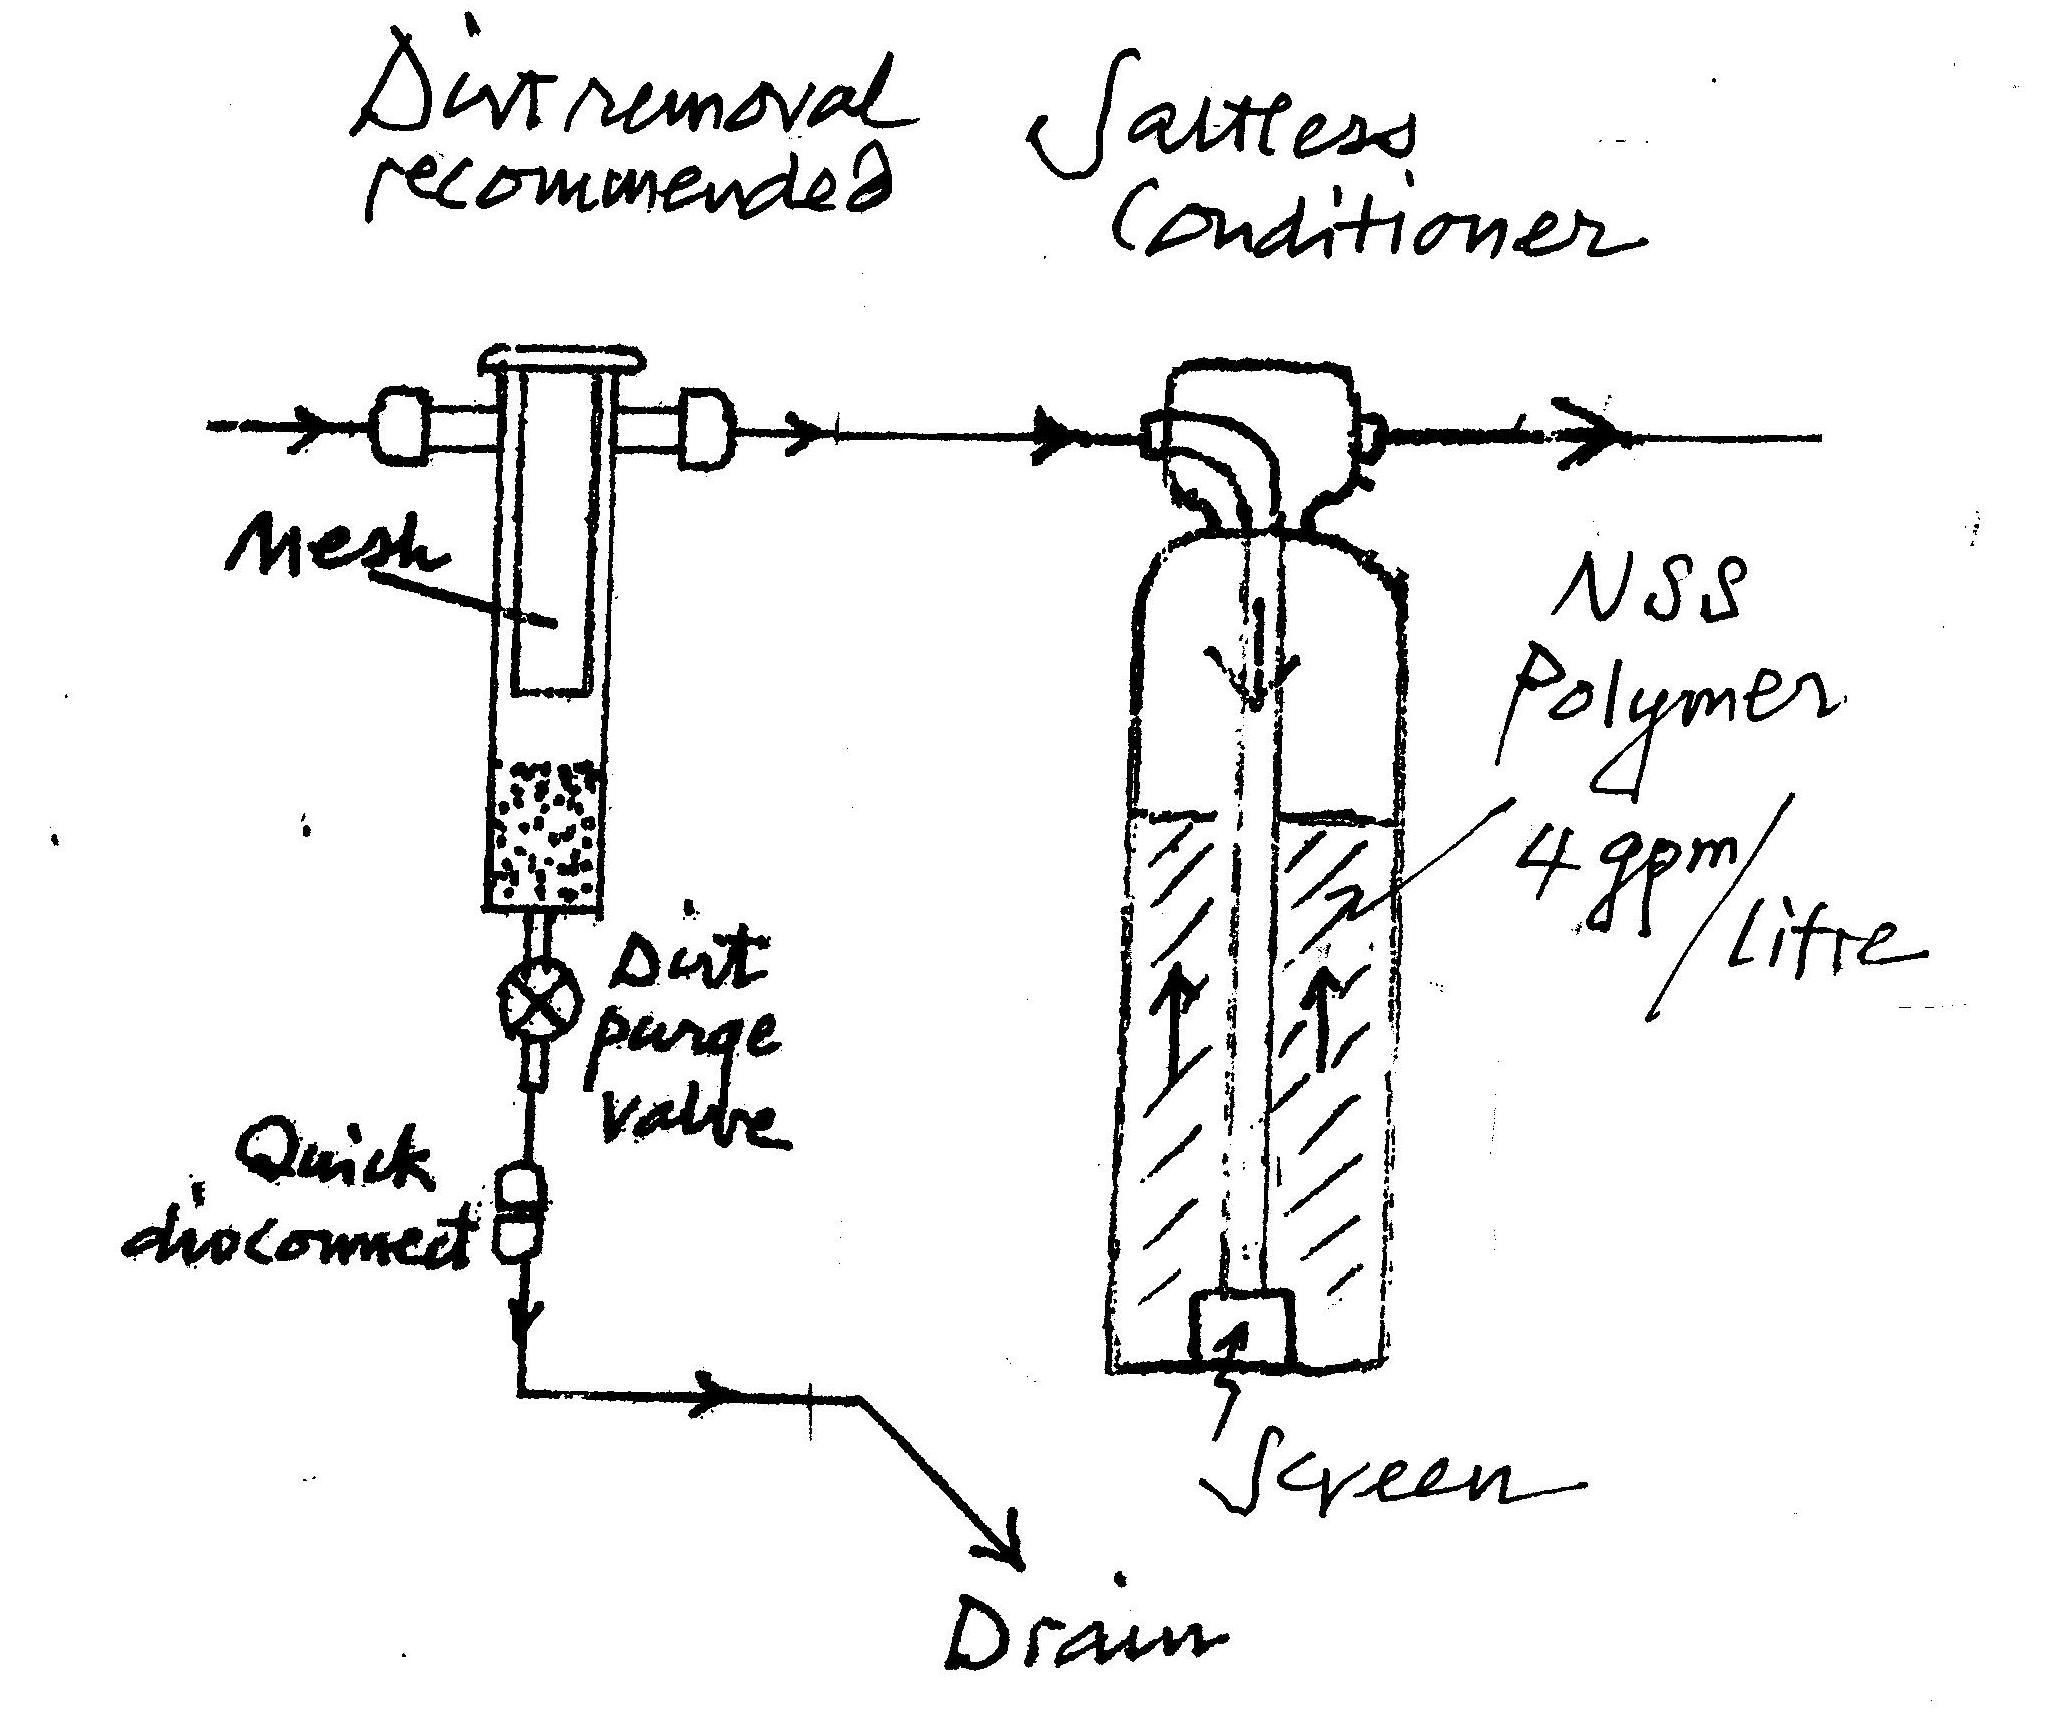 Dirt removal
recommended
Saltless
Conditioner
Mesh
NSS
Polymer
4 gpm/litre
Dirt
purge
valve
Quick
disconnect
Screen
Drain